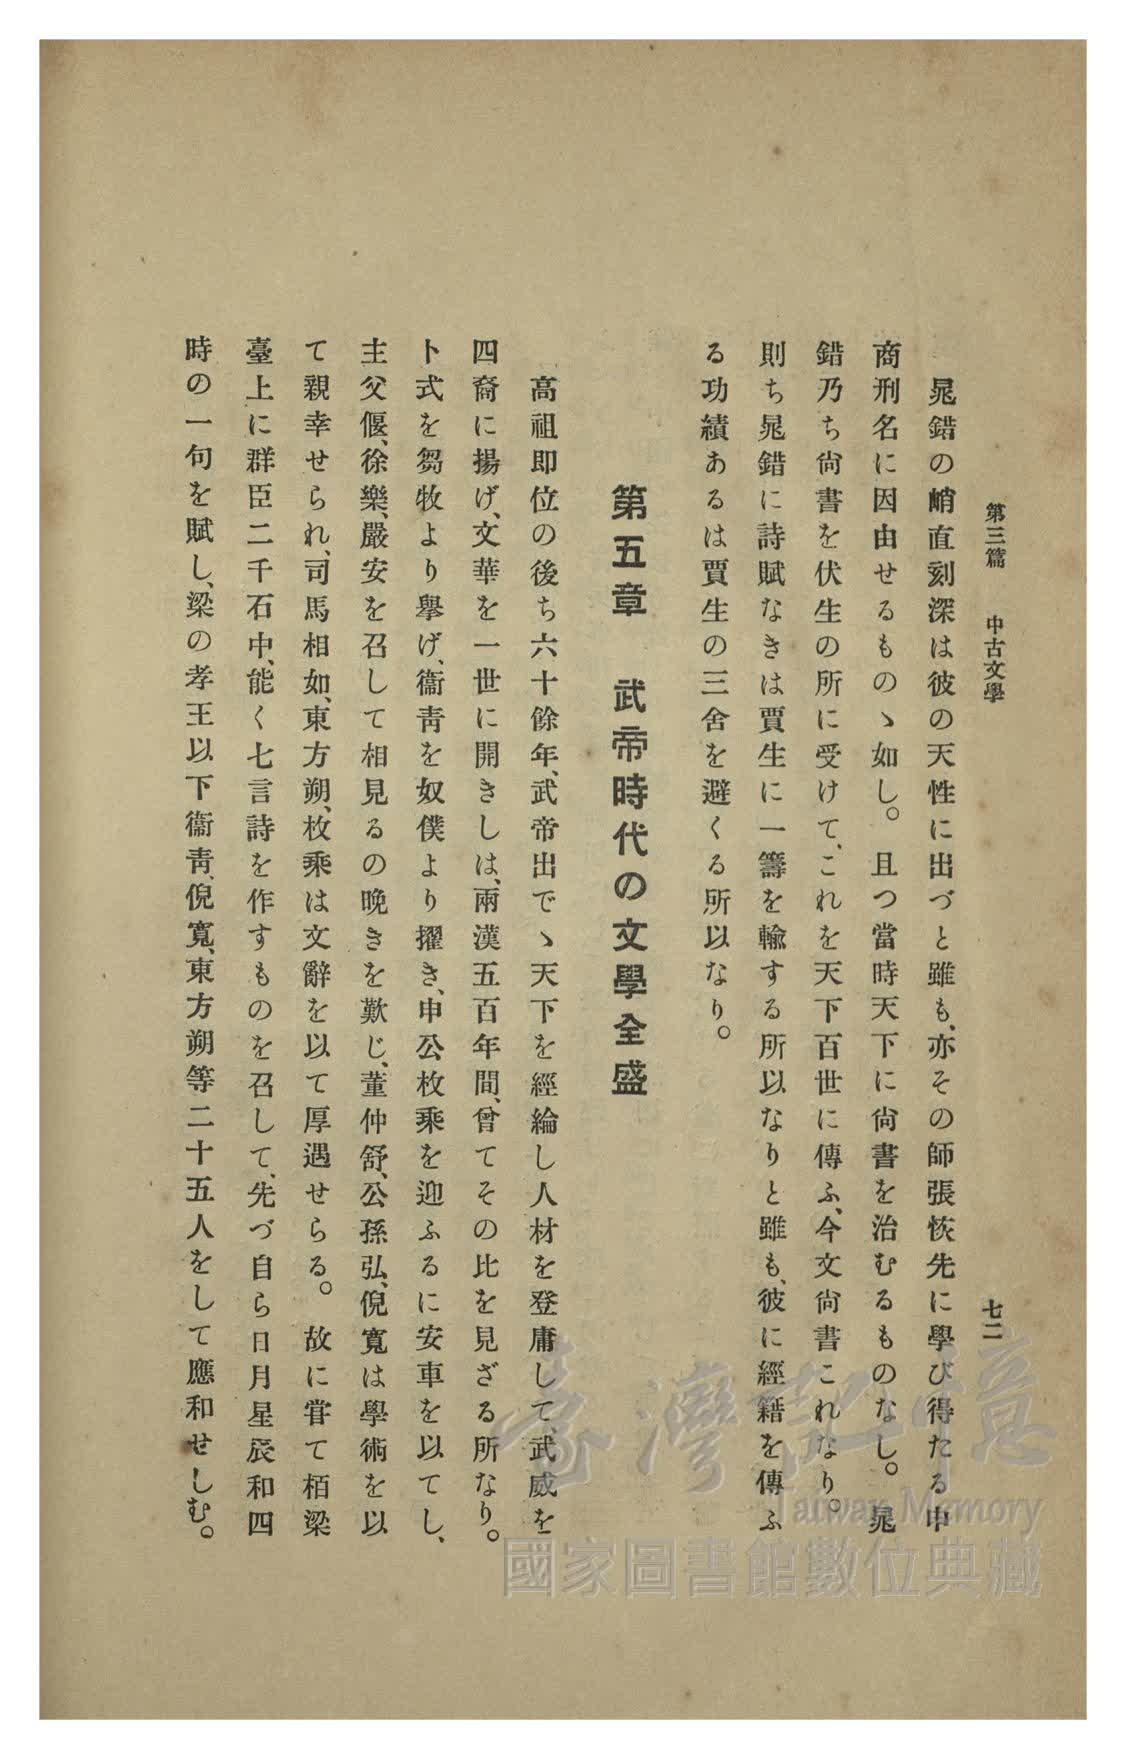 第三篇　中古文學
七二
晁錯の峭直刻深は彼の天性に出づと雖も、亦その師張恢先に學び得たる申
商刑名に因由せるものゝ如し。且つ當時天下に尙書を治むるものなし。晁
錯乃ち尙書を伏生の所に受けて、これを天下百世に傳ふ、今文尙書これなり。
則ち晁錯に詩賦なきは賈生に一籌を輸する所以なりと雖も、彼に經籍を傳ふ
る功績あるは賈生の三舍を避くる所以なり。
第五章　武帝時代の文學全盛
高祖即位の後ち六十餘年、武帝出でゝ天下を經綸し人材を登庸して、武威を
四裔に揚げ、文華を一世に開きしは、兩漢五百年間、曾てその比を見ざる所なり。
卜式を芻牧より擧げ、衞靑を奴僕より擢き、申公枚乘を迎ふるに安車を以てし、
主父偃、徐樂、嚴安を召して相見るの晩きを歎じ、董仲舒、公孫弘、倪寬は學術を以
て親幸せられ、司馬相如、東方朔、枚乘は文辭を以て厚遇せらる。故に甞て栢梁
臺上に群臣二千石中、能く七言詩を作すものを召して、先づ自ら日月星辰和四
時の一句を賦し、梁の孝王以下衞靑、倪寬、東方朔等二十五人をして應和せしむ。
臺灣記憶
Taiwan Memory
國家圖書館數位典藏